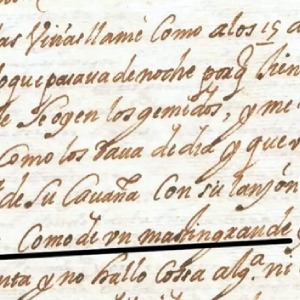 as Viñas llamè Como alos 15 a
oque pasava de noche porq̃ sien
se oyen los gemidos, y me
Como los dava de dia y que v
de Su Cavaña Con su lanjón
Como de vn mastin grande
nta y no hallo Cossa alg.ª ni